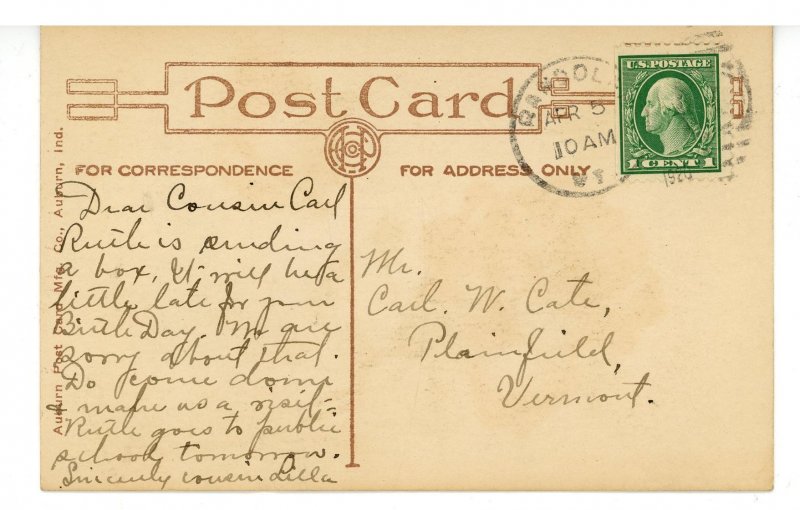 Post Card
FOR CORRESPONDENCE
FOR ADDRESS ONLY
Auburn Post Card Mfg. Co., Auburn, Ind.
U.S. POSTAGE
1 CENT 1
RANDOL
APR 5
10 AM
VT
Dear Cousin Carl
Ruth is sending
a box, It will be a
little late for your
Birth Day. We are
sorry about that.
Do come down
& make us a visit-
Ruth goes to public
school tomorrow.
Sincerely cousin Lella
Mr.
Carl. W. Cate,
Plainfield,
Vermont.